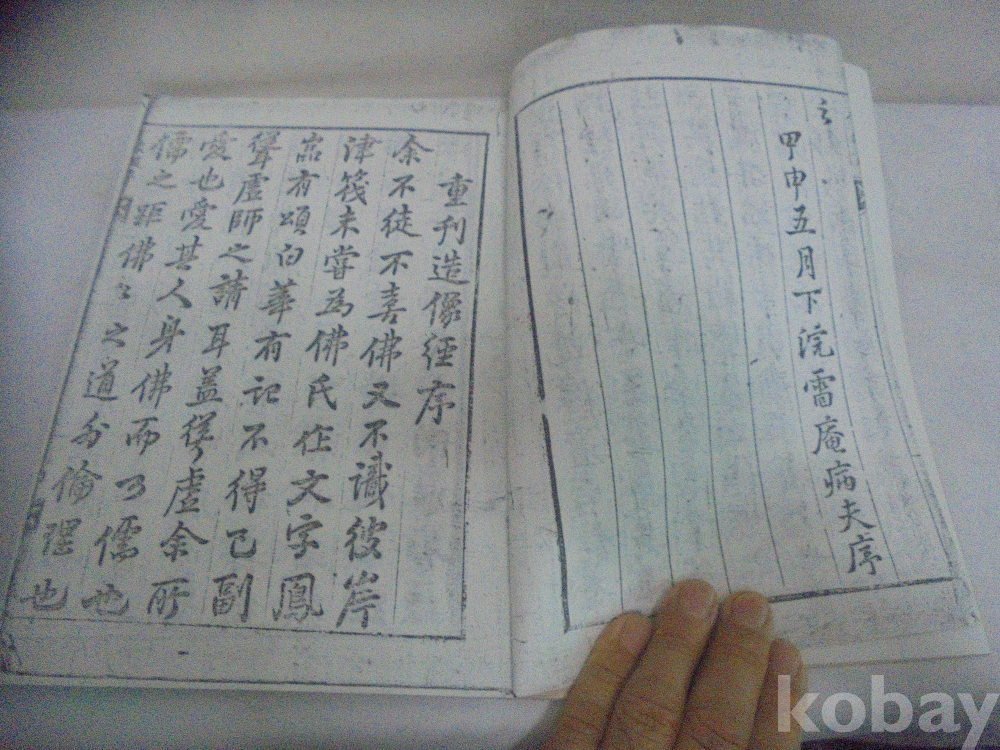 之
甲申五月下浣雷庵病夫序
重刊造像經序
余不徒不喜佛又不識彼岸
津筏未嘗為佛氏作文字鳳
嵓有頌白華有記不得已副
聳虛師之請耳蓋聳虛余所
愛也愛其人身佛而乃儒也
儒之距佛〻之道外倫理也
kobay